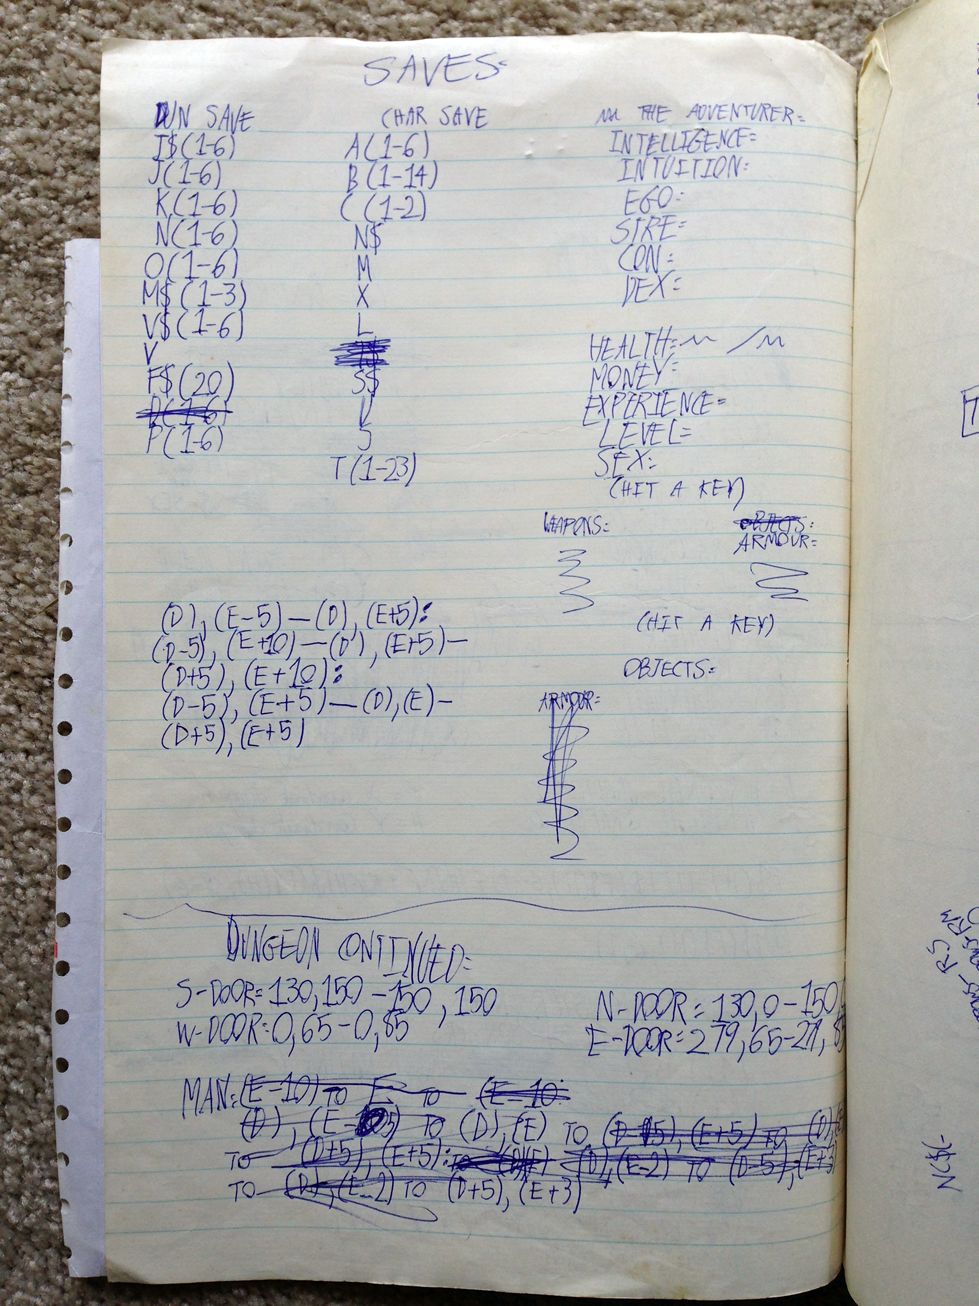 SAVES=
DUN SAVE
I$(1-6)
J(1-6)
K(1-6)
N(1-6)
O(1-6)
M$(1-3)
V$(1-6)
V
F$(20)
P(1-6)
CHAR SAVE
A(1-6)
B(1-14)
C(1-2)
N$
M
X
L
S$
J
T(1-23)
THE ADVENTURER=
INTELLIGENCE=
INTUITION=
EGO=
STRE=
CON=
DEX=
HEALTH= /
MONEY=
EXPERIENCE=
LEVEL=
SEX=
(HIT A KEY)
WEAPONS=
OBJECTS:
ARMOUR=
(HIT A KEY)
OBJECTS=
ARMOUR=
(D),(E-5)—(D),(E+5):
(D-5),(E+10)—(D),(E+5)—
(D+5),(E+10):
(D-5),(E+5)—(D),(E)—
(D+5),(E+5)
DUNGEON CONTINUED=
S-DOOR=130,150-150,150
N-DOOR=130,0-150,
W-DOOR=0,65-0,85
E-DOOR=279,65-279,85
MAN=(E-10) TO E TO (E-10:
(D),(E-5) TO (D),(E) TO (D-5),(E+5) TO (D),
TO (D+5),(E+5): (D),(E-2) TO (D-5),(E+3
TO (D),(E-2) TO (D+5),(E+3)
NC$(-